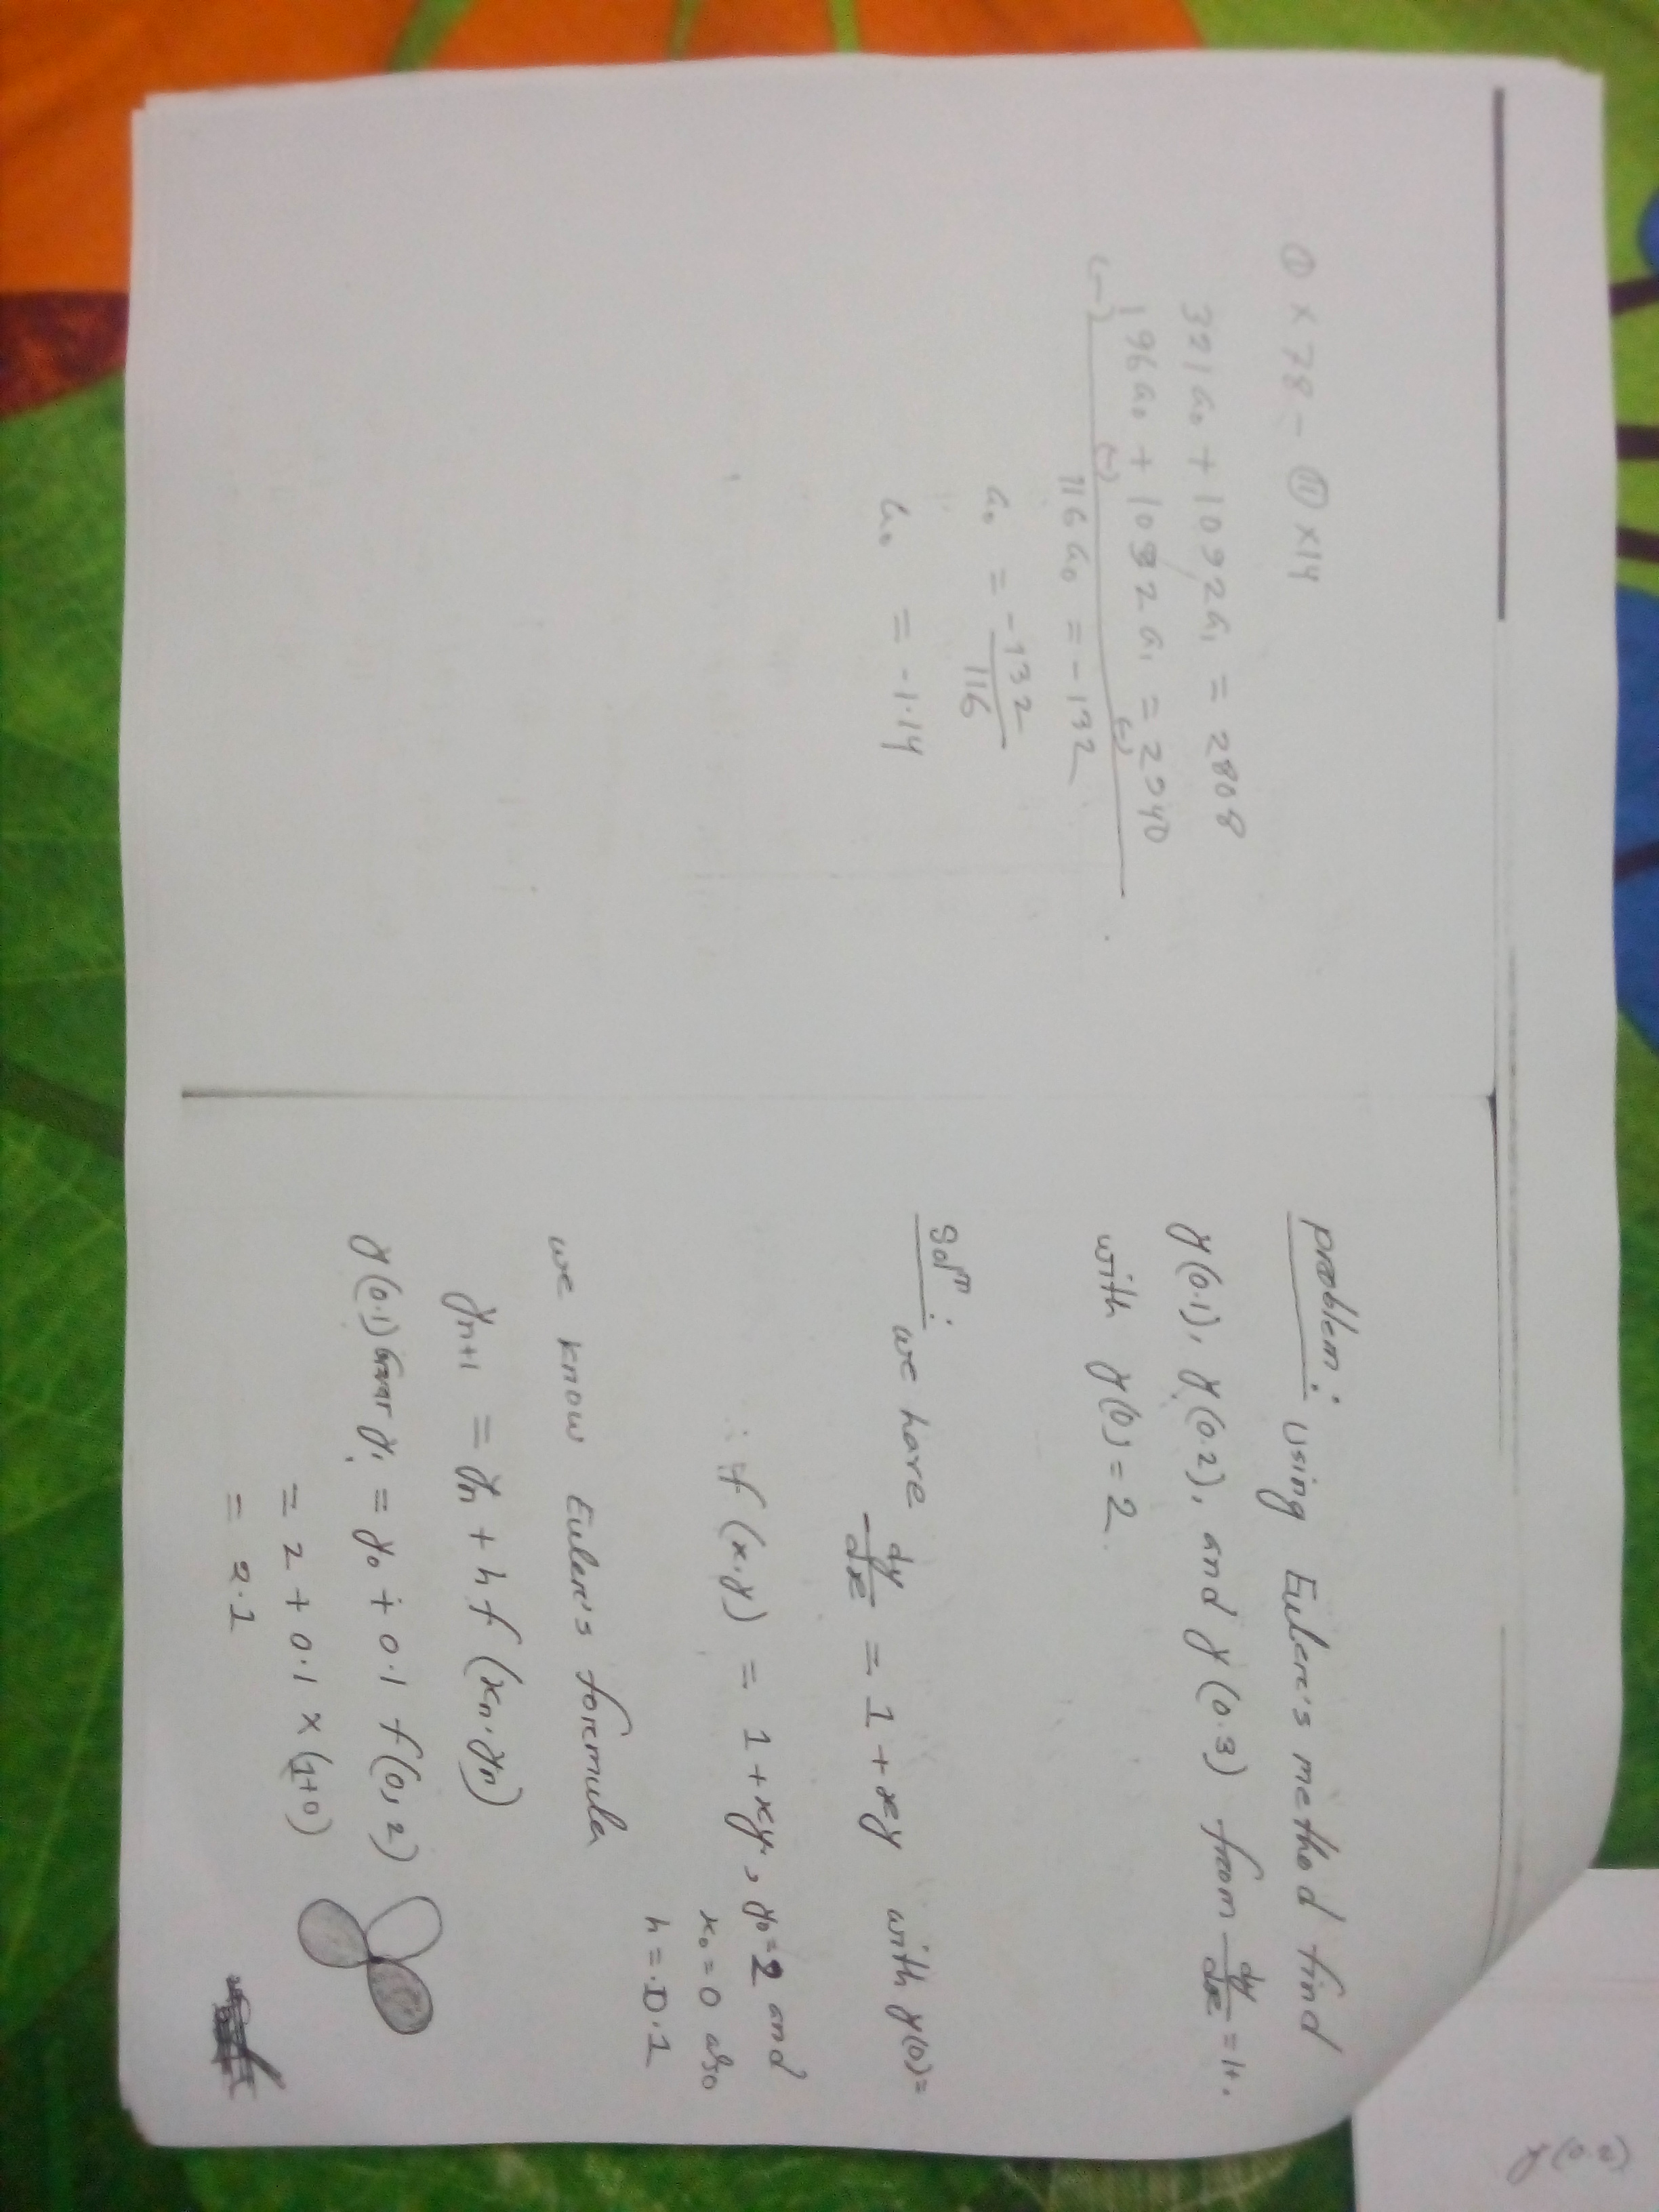 ① × 78 - ⑪ ×14
321a₀ + 1092a₁ = 2808
196a₀ + 1092a₁ = 2940
(-) (-) (-)
116a₀ = -132
a₀ = -132/116
a₀ = -1.14
problem: Using Euler's method find
y(0.1), y(0.2), and y(0.3) from dy/dx = 1+.
with y(0) = 2.
Solⁿ:
we have dy/dx = 1 + xy with y(0)=
∴ f(x.y) = 1 + xy, y₀=2 and
x₀ = 0 also
h = .0.1
we know Euler's formula
yₙ₊₁ = yₙ + hf (xₙ.yₙ)
y(0.1) y₁ = y₀ + 0.1 f(0, 2)
= 2 + 0.1 × (1+0)
= 2.1
y(0.2)